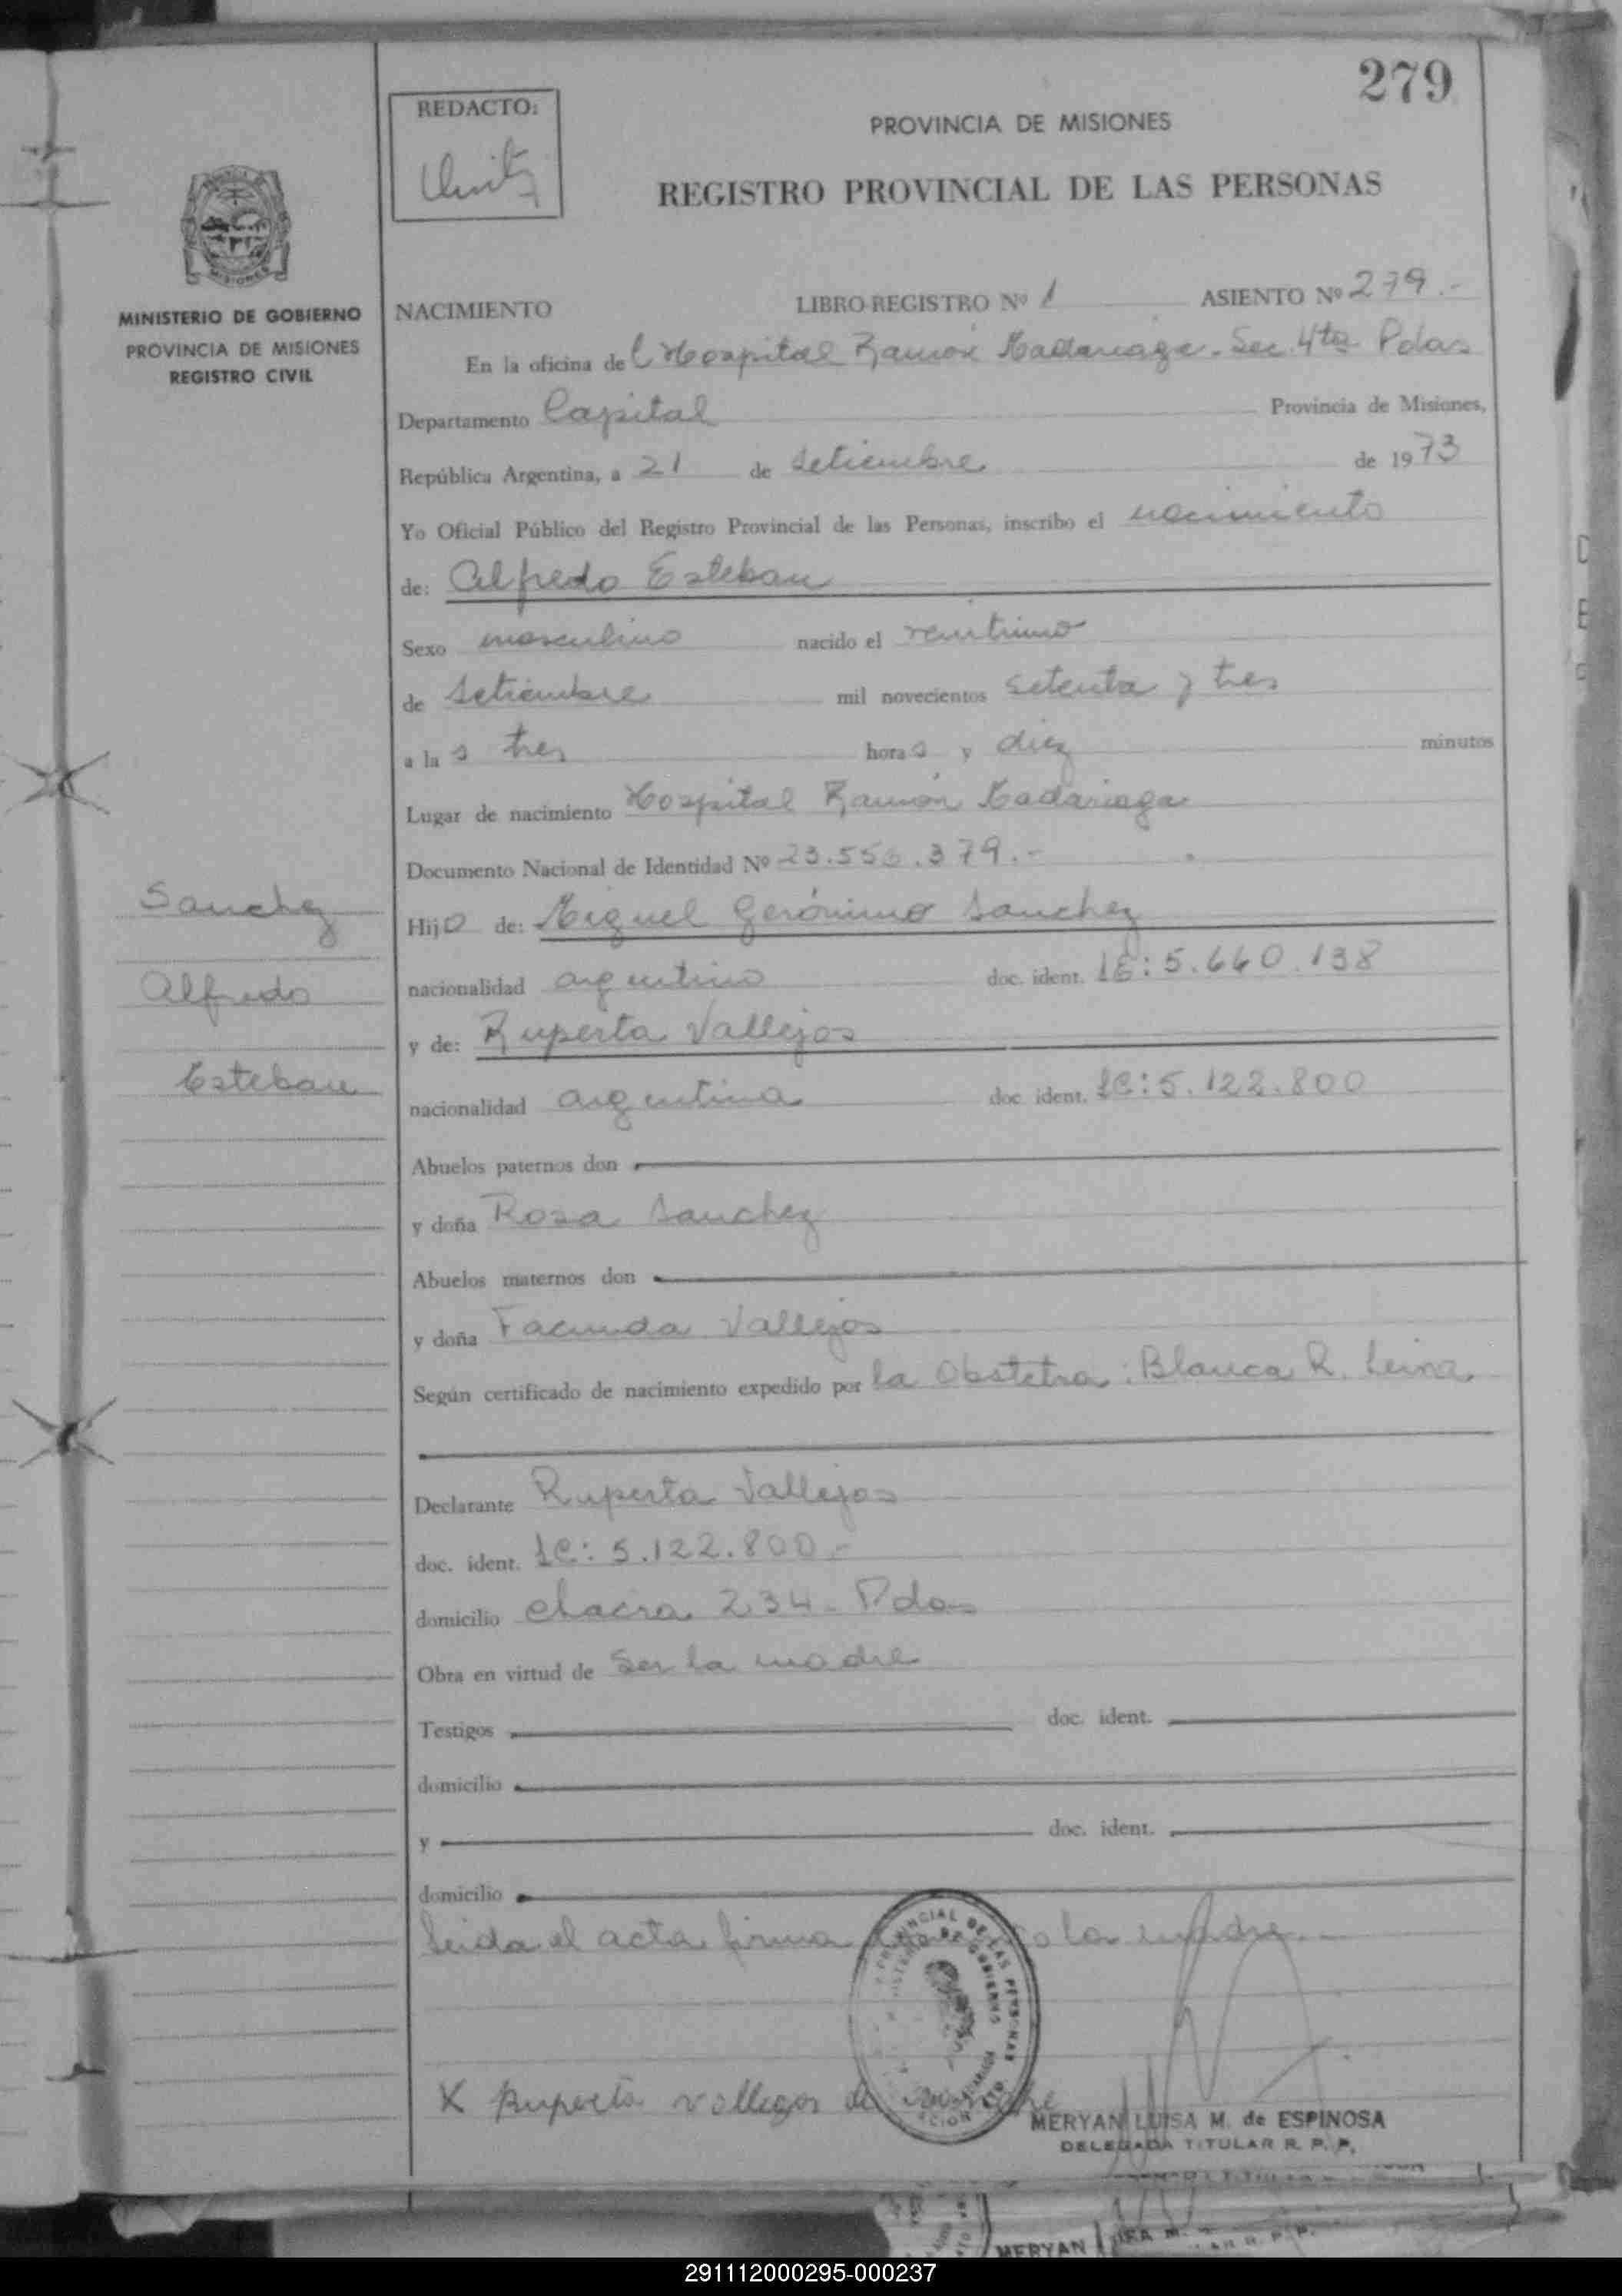 279
REDACTO:
PROVINCIA DE MISIONES
REGISTRO PROVINCIAL DE LAS PERSONAS
MINISTERIO DE GOBIERNO
PROVINCIA DE MISIONES
REGISTRO CIVIL
NACIMIENTO LIBRO-REGISTRO Nº 1 ASIENTO Nº 279.-
En la oficina del Hospital Ramón Madariaga - Sec. 4ta Pdas
Departamento Capital Provincia de Misiones,
República Argentina, a 21 de setiembre de 1973
Yo Oficial Público del Registro Provincial de las Personas, inscribo el nacimiento
de: Alfredo Esteban
Sexo masculino nacido el
de setiembre mil novecientos setenta y tres
a las tres horas y diez minutos
Lugar de nacimiento Hospital Ramón Madariaga
Documento Nacional de Identidad Nº 23.556.379.-
Sanchez
Hijo de: Miguel Gerónimo Sanchez
Alfredo
nacionalidad argentino doc. ident. LE: 5.660.138
y de: Ruperta Vallejos
Esteban
nacionalidad argentina doc. ident. LC: 5.122.800
Abuelos paternos don
y doña Rosa Sanchez
Abuelos maternos don
y doña Facunda Vallejos
Según certificado de nacimiento expedido por la Obstetra: Blanca R. Leiva
Declarante Ruperta Vallejos
doc. ident. LC: 5.122.800.-
domicilio chacra 234 - Pdas
Obra en virtud de ser la madre
Testigos doc. ident.
domicilio
y doc. ident.
domicilio
Leida el acta firma la madre.-
X Ruperta Vallejos de
MERYAN LUISA M. de ESPINOSA
DELEGADA TITULAR R. P. P.
MERYAN
291112000295-000237